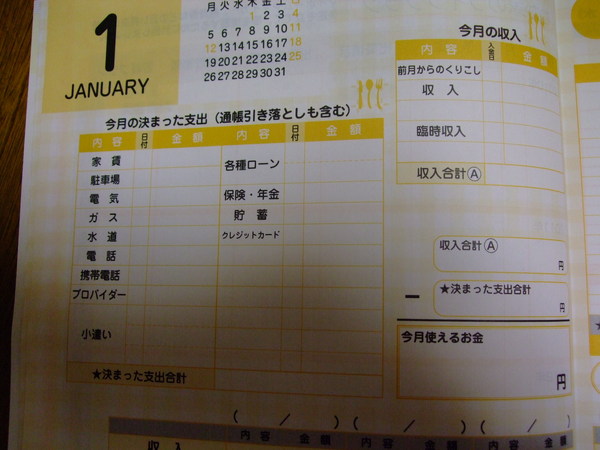 1
JANUARY
月 火 水 木 金 土
1 2 3 4
5 6 7 8 9 10 11
12 13 14 15 16 17 18
19 20 21 22 23 24 25
26 27 28 29 30 31
今月の決まった支出（通帳引き落としも含む）
内容 日付 金額 内容 日付 金額
家賃 各種ローン
駐車場
電気 保険・年金
ガス 貯蓄
水道 クレジットカード
電話
携帯電話
プロバイダー
小遣い
★決まった支出合計
今月の収入
内容 入金日 金額
前月からのくりこし
収入
臨時収入
収入合計Ⓐ
収入合計Ⓐ
円
－ ★決まった支出合計
円
今月使えるお金
円
( / ) ( / ) ( / )
内容 金額 内容 金額 内容 金額
収入